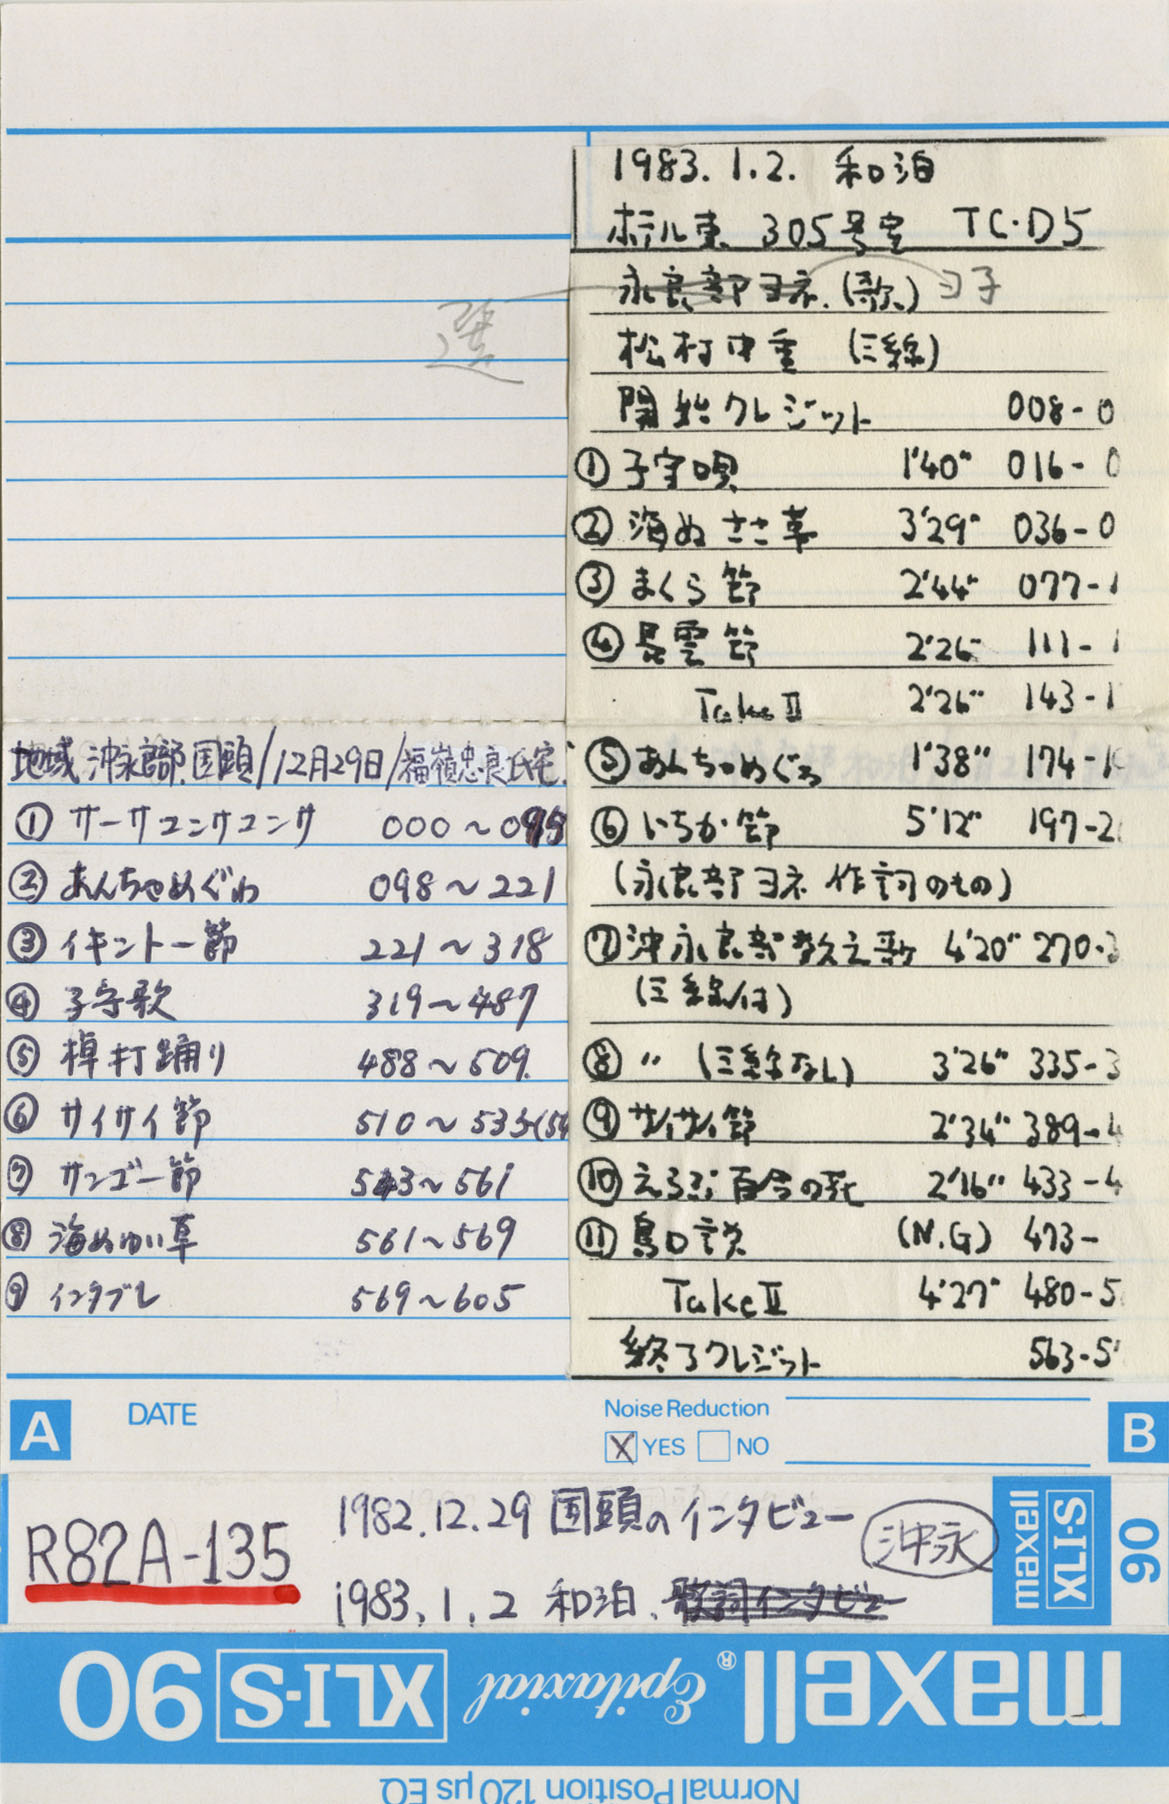 1983.1.2. 和泊
ホテル東 305号室 TC・D5
永良部ヨネ.(歌) ヨ子
選
松村中重 (三線)
開始クレジット 008-0
① 子守唄 1'40" 016-0
② 海ぬささ草 3'29" 036-0
③ まくら節 2'44" 077-1
④ 長雲節 2'26" 111-1
Take II 2'26" 143-1
⑤ あんちゃめぐわ 1'38" 174-1
⑥ いちか節 5'12" 197-2
(永良部ヨネ 作詞のもの)
⑦ 沖永良部数え歌 4'20" 270-3
(三線付)
⑧ 〃 (三線なし) 3'26" 335-3
⑨ サイサイ節 2'34" 389-4
⑩ えらぶ百合の花 2'16" 433-4
⑪ 島口説 (N.G) 473-
Take II 4'27" 480-5
終了クレジット 563-5
地域 沖永良部.国頭/12月29日/福嶺忠良氏宅.
① サーサコンサコンサ 000〜095
② あんちゃめぐわ 098〜221
③ イキントー節 221〜318
④ 子守歌 319〜487
⑤ 棹打踊り 488〜509.
⑥ サイサイ節 510〜533(54
⑦ サンゴー節 543〜561
⑧ 海ぬゆい草 561〜569
⑨ インタブレ 569〜605
A DATE
Noise Reduction
X YES NO
B
R82A-135
1982.12.29 国頭のインタビュー
沖永
1983.1.2 和泊. 歌詞インタビュー
maxell XLI-S 90
maxell® Epitaxial XLI-S 90
Normal Position 120µs EQ